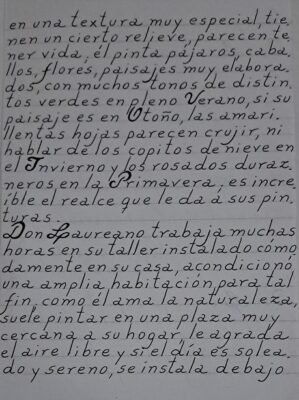 en una textura muy especial, tie.
nen un cierto relieve, parecen te.
ner vida; él pinta pájaros, caba.
llos, flores, paisajes muy elabora.
dos, con muchos tonos de distin.
tos verdes en pleno Verano, si su
paisaje es en Otoño, las amari.
llentas hojas parecen crujir, ni
hablar de los copitos de nieve en
el Invierno y los rosados duraz.
neros en la Primavera; es incre.
íble el realce que le da a sus pin.
turas.
Don Laureano trabaja muchas
horas en su taller instalado cómo
damente en su casa, acondicionó
una amplia habitación para tal
fin, como él ama la naturaleza,
suele pintar en una plaza muy
cercana a su hogar, le agrada
el aire libre y si el día es solea.
do y sereno, se instala debajo